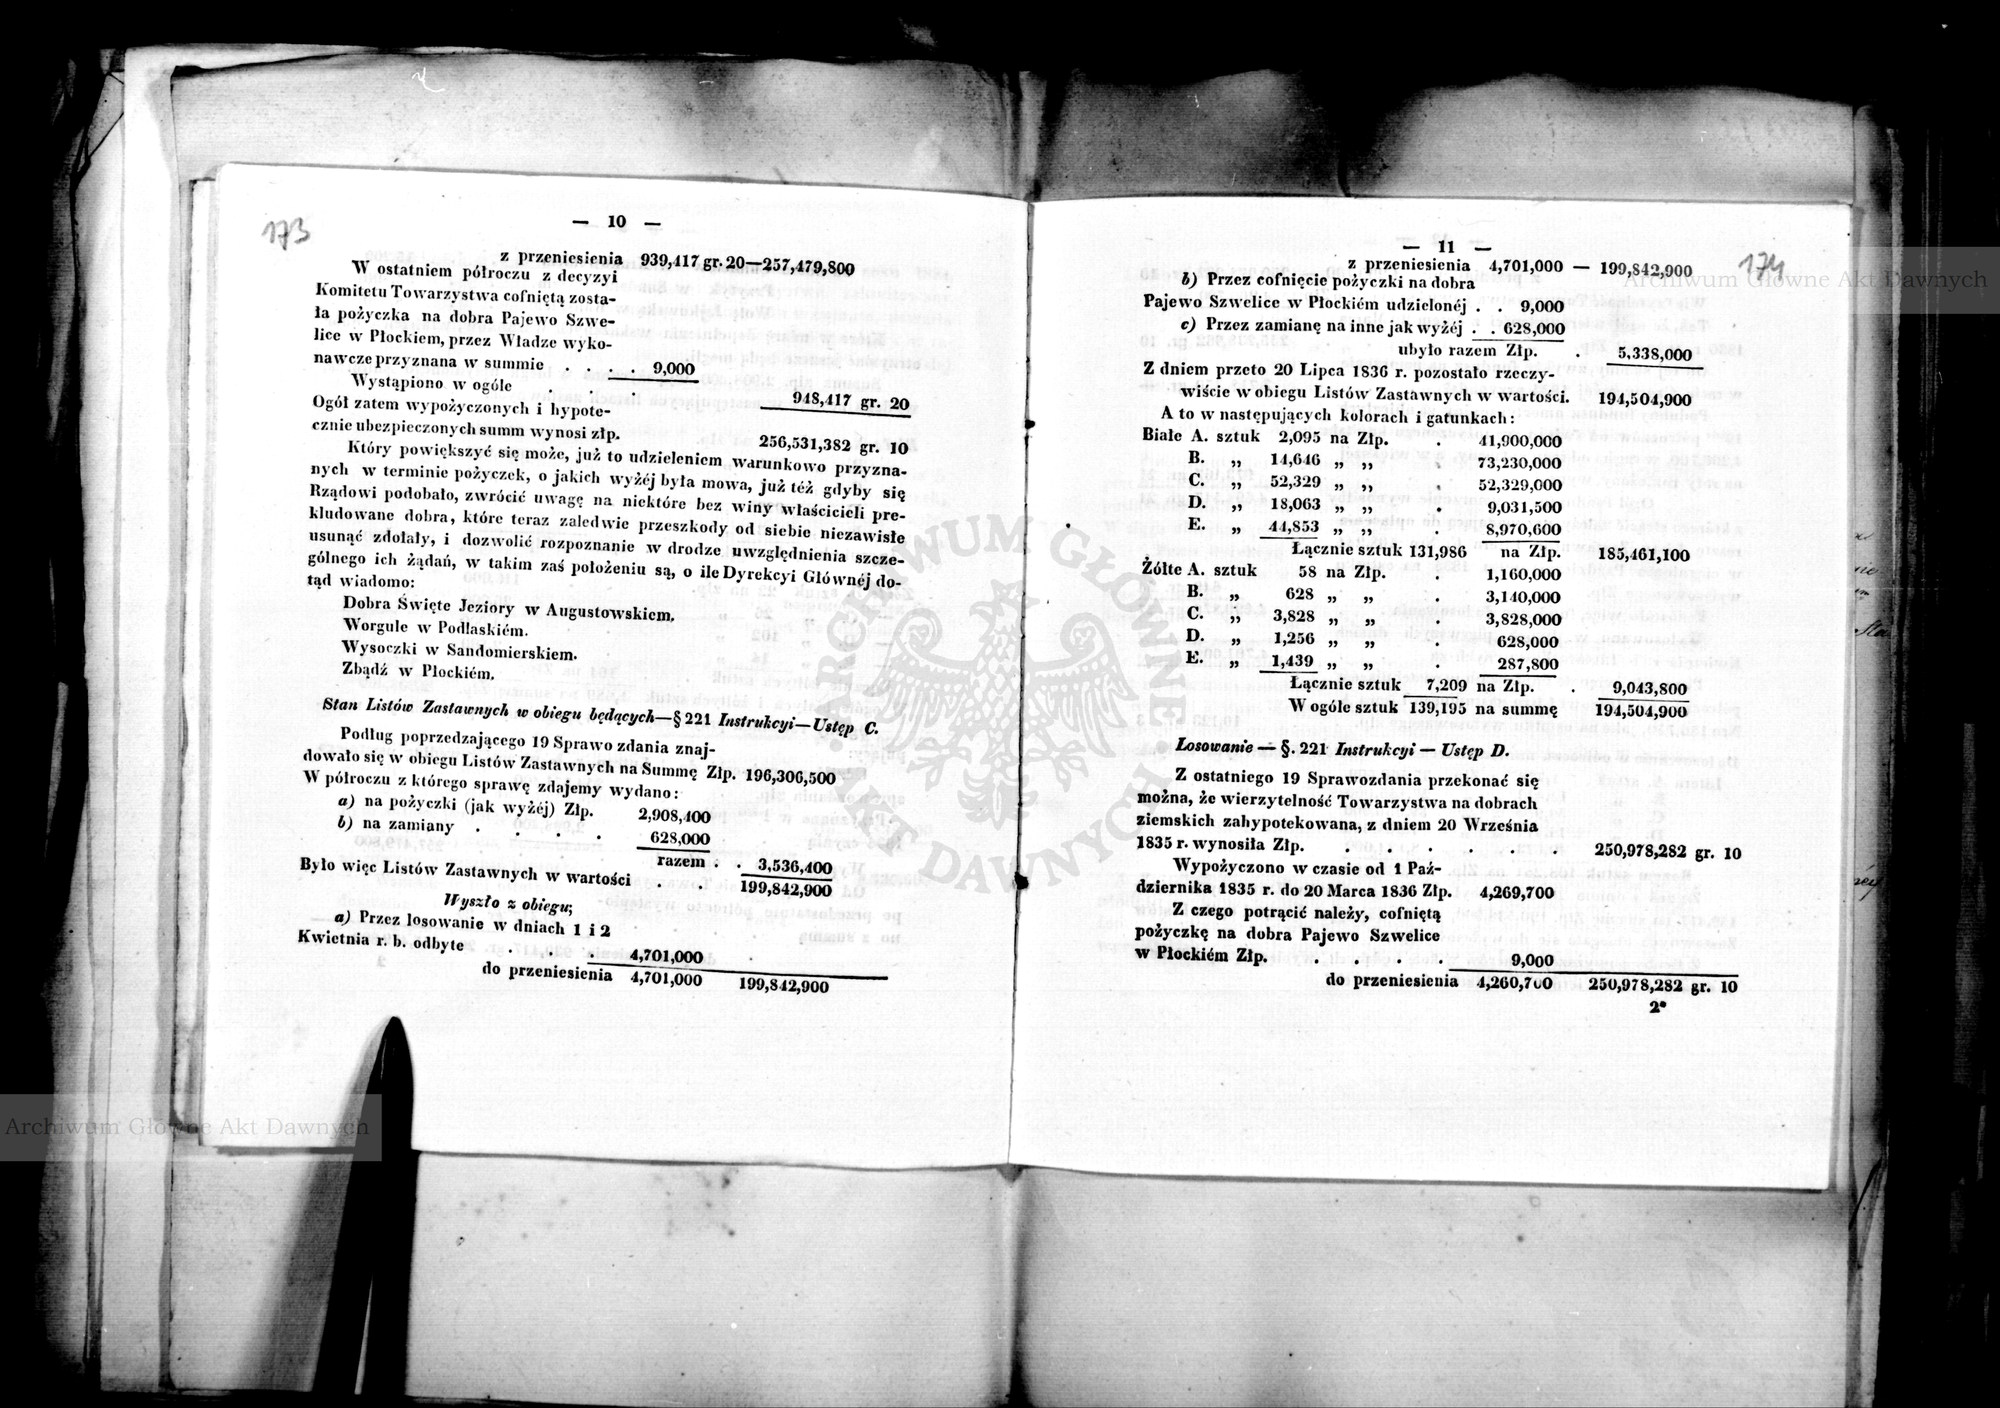 173
— 10 —
z przeniesienia 939,417 gr. 20—257,479,800
W ostatniem półroczu z decyzyi
Komitetu Towarzystwa cofniętą zosta-
ła pożyczka na dobra Pajewo Szwe-
lice w Płockiem, przez Władze wyko-
nawcze przyznana w summie . . . . 9,000
Wystąpiono w ogóle . . . 948,417 gr. 20
Ogół zatem wypożyczonych i hypote-
cznie ubezpieczonych summ wynosi złp. 256,531,382 gr. 10
Który powiększyć się może, już to udzieleniem warunkowo przyzna-
nych w terminie pożyczek, o jakich wyżéj była mowa, już téż gdyby się
Rządowi podobało, zwrócić uwagę na niektóre bez winy właścicieli pre-
kludowane dobra, które teraz zaledwie przeszkody od siebie niezawisłe
usunąć zdołały, i dozwolić rozpoznanie w drodze uwzględnienia szcze-
gólnego ich żądań, w takim zaś położeniu są, o ile Dyrekcyi Głównéj do-
tąd wiadomo:
Dobra Święte Jeziory w Augustowskiem.
Worgule w Podlaskiém.
Wysoczki w Sandomierskiem.
Zbądź w Płockiém.
Stan Listów Zastawnych w obiegu będących—§ 221 Instrukcyi—Ustęp C.
Podług poprzedzającego 19 Sprawo zdania znaj-
dowało się w obiegu Listów Zastawnych na Summę Złp. 196,306,500
W półroczu z którego sprawę zdajemy wydano:
a) na pożyczki (jak wyżéj) Złp. 2,908,400
b) na zamiany . . . . 628,000
razem . . 3,536,400
Było więc Listów Zastawnych w wartości . . 199,842,900
Wyszło z obiegu;
a) Przez losowanie w dniach 1 i 2
Kwietnia r. b. odbyte . . . 4,701,000
do przeniesienia 4,701,000 199,842,900
174
— 11 —
z przeniesienia 4,701,000 — 199,842,900
b) Przez cofnięcie pożyczki na dobra
Pajewo Szwelice w Płockiém udzielonéj . . 9,000
c) Przez zamianę na inne jak wyżéj . . 628,000
ubyło razem Złp. . 5,338,000
Z dniem przeto 20 Lipca 1836 r. pozostało rzeczy-
wiście w obiegu Listów Zastawnych w wartości. 194,504,900
A to w następujących kolorach i gatunkach:
Białe A. sztuk 2,095 na Złp. . 41,900,000
B. „ 14,646 „ „ . 73,230,000
C. „ 52,329 „ „ . 52,329,000
D. „ 18,063 „ „ . 9,031,500
E. „ 44,853 „ „ . 8,970,600
Łącznie sztuk 131,986 na Złp. 185,461,100
Żółte A. sztuk 58 na Złp. . 1,160,000
B. „ 628 „ „ . 3,140,000
C. „ 3,828 „ „ . 3,828,000
D. „ 1,256 „ „ . 628,000
E. „ 1,439 „ „ . 287,800
Łącznie sztuk 7,209 na Złp. . 9,043,800
W ogóle sztuk 139,195 na summę 194,504,900
Losowanie — §. 221 Instrukcyi — Ustęp D.
Z ostatniego 19 Sprawozdania przekonać się
można, że wierzytelność Towarzystwa na dobrach
ziemskich zahypotekowana, z dniem 20 Września
1835 r. wynosiła Złp. . . . . . . 250,978,282 gr. 10
Wypożyczono w czasie od 1 Paź-
dziernika 1835 r. do 20 Marca 1836 Złp. 4,269,700
Z czego potrącić należy, cofniętą
pożyczkę na dobra Pajewo Szwelice
w Płockiém Złp. . . . . 9,000
do przeniesienia 4,260,700 250,978,282 gr. 10
2*
Archiwum Główne Akt Dawnych
Archiwum Główne Akt Dawnych
ARCHIWUM GŁÓWNE AKT DAWNYCH